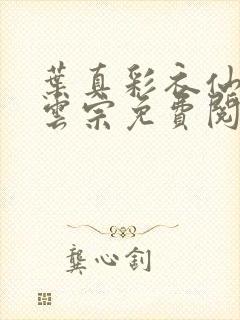 葉真彩衣仙
雲宗免費閱
龔心釗